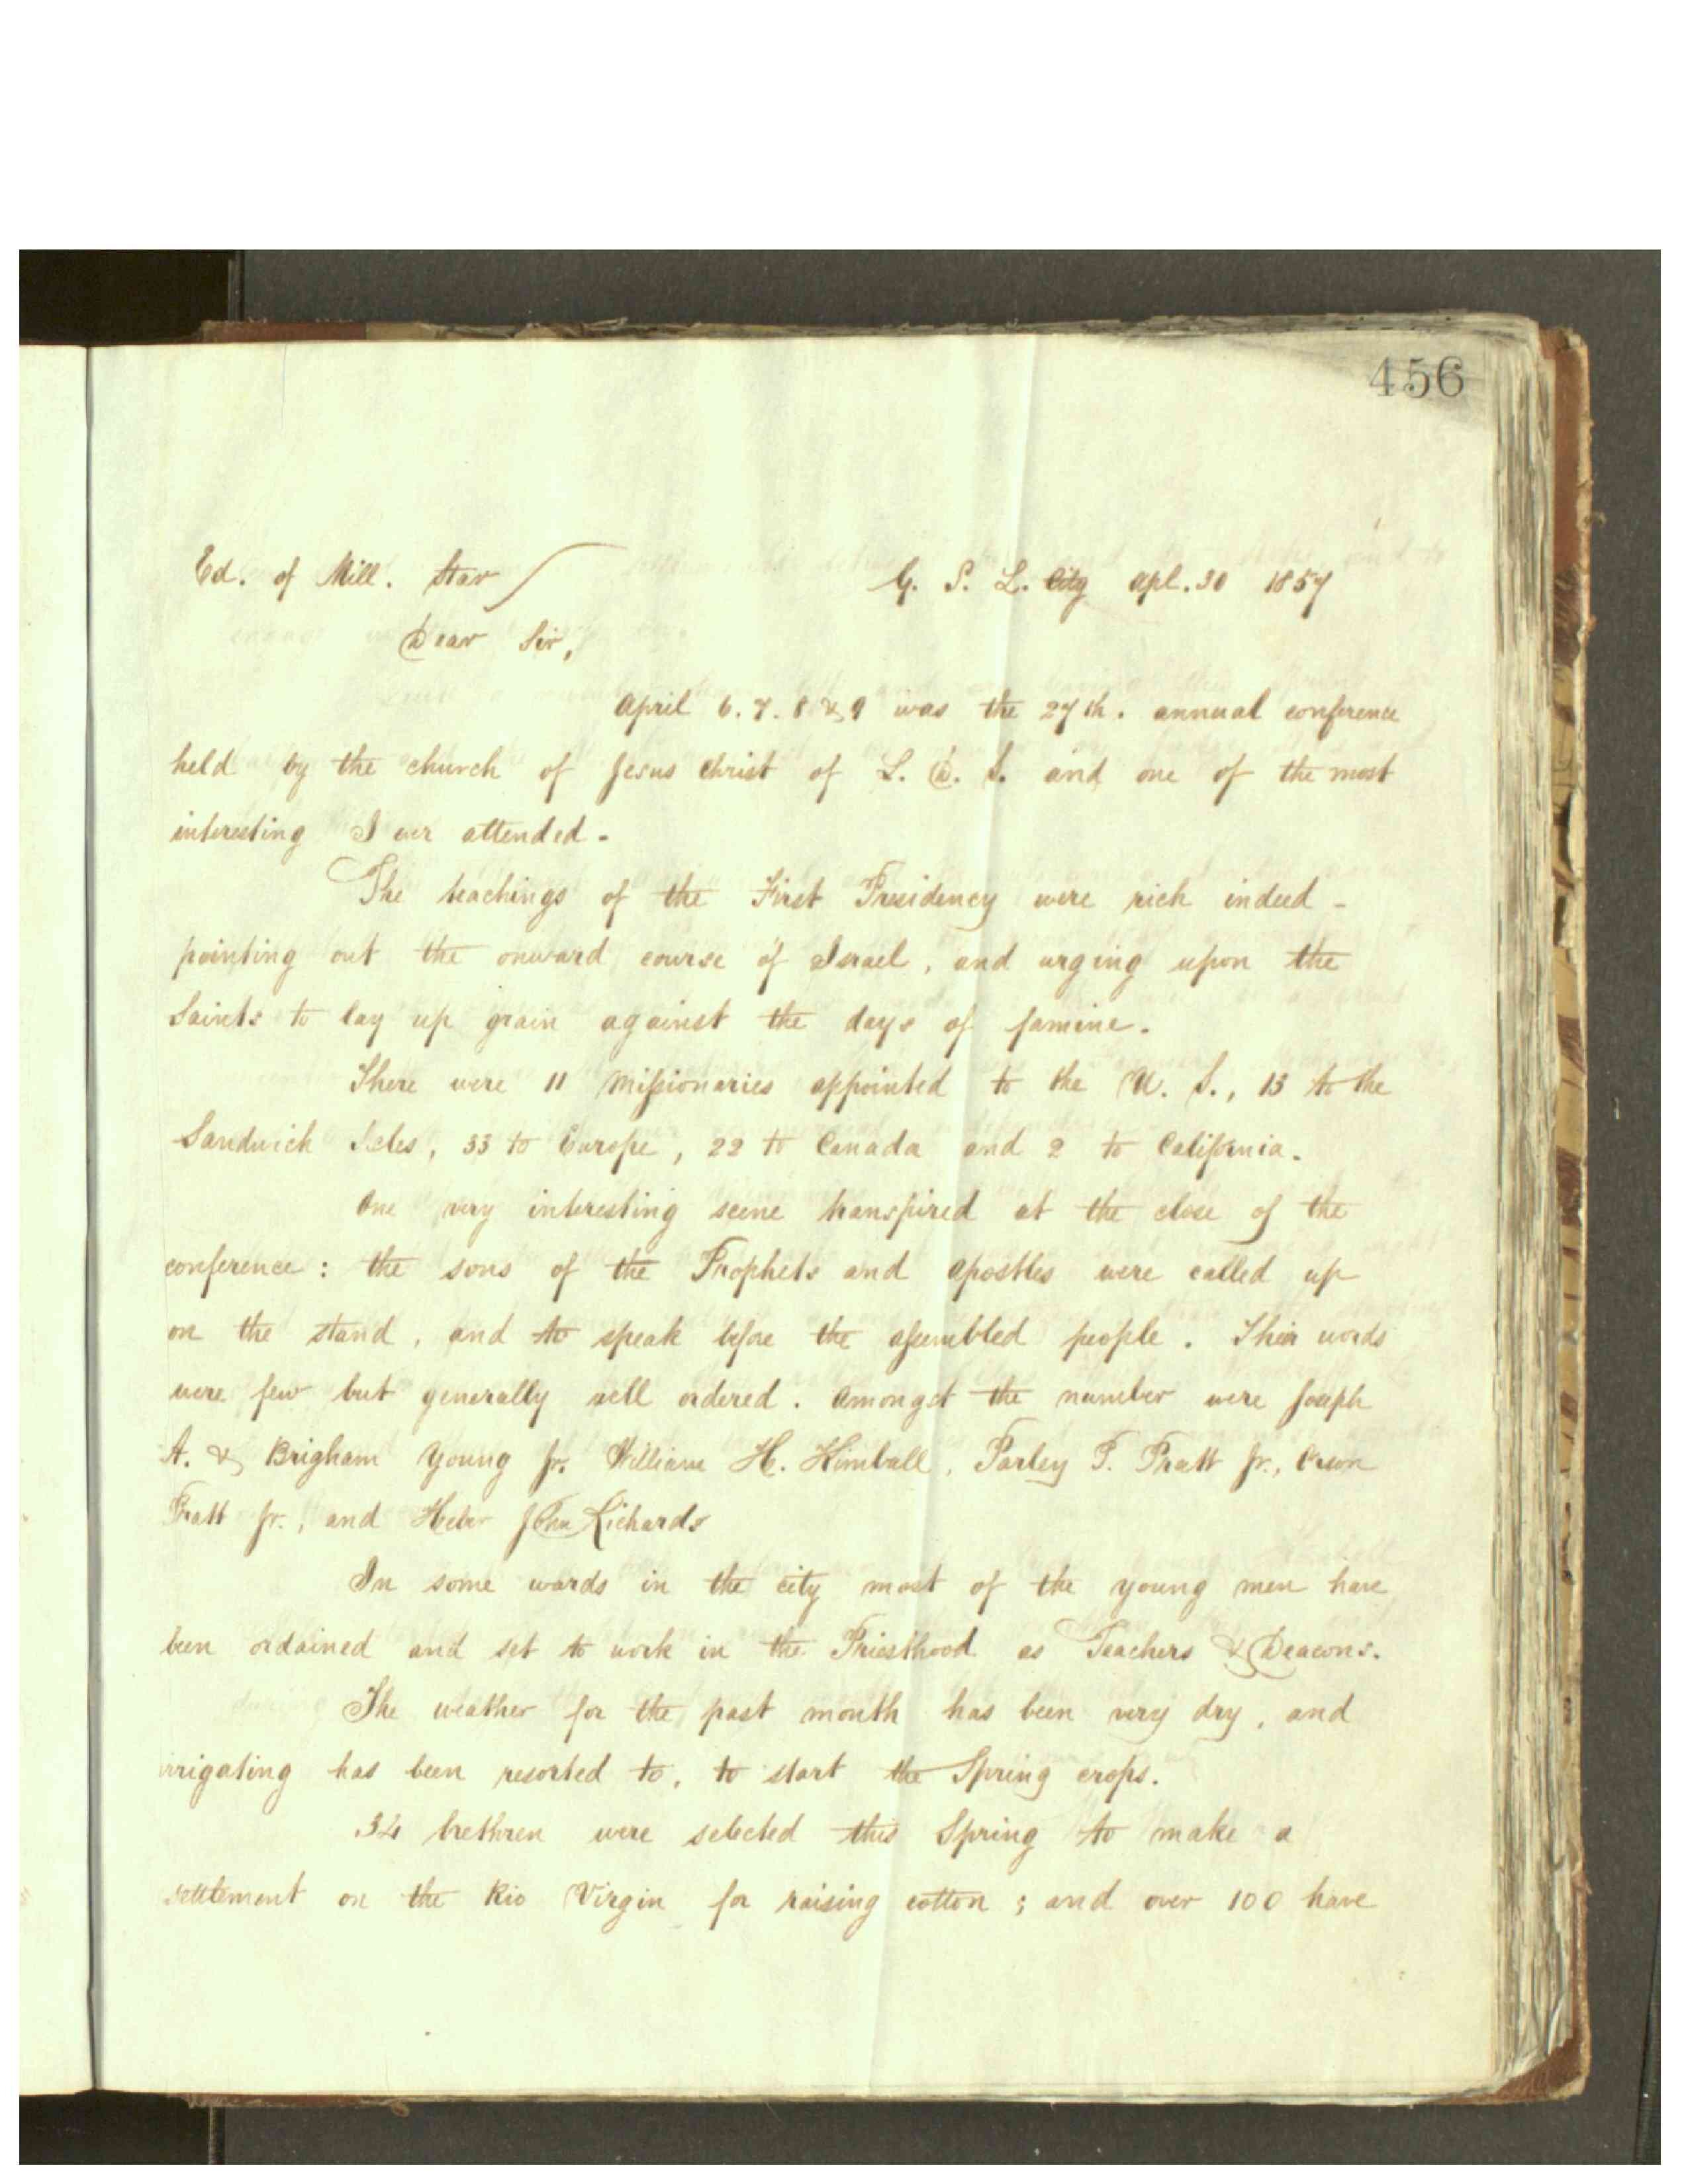 456
Ed. of Mill. Star
G. S. L. City Apl. 30 1857
Dear Sir,
April 6. 7. 8 & 9 was the 27th. annual conference
held by the church of Jesus Christ of L. D. S. and one of the most
interesting I ever attended -
The teachings of the First Presidency were rich indeed -
pointing out the onward course of Israel, and urging upon the
Saints to lay up grain against the days of famine.
There were 11 Missionaries appointed to the U. S., 13 to the
Sandwich Isles, 33 to Europe, 22 to Canada and 2 to California.
One very interesting scene transpired at the close of the
conference: the sons of the Prophets and Apostles were called up
on the stand, and to speak before the assembled people. Their words
were few but generally well ordered. Amongst the number were Joseph
A. & Brigham Young Jr. William H. Kimball, Parley P. Pratt Jr., Orson
Pratt Jr., and Heber John Richards
In some wards in the city most of the young men have
been ordained and set to work in the Priesthood as Teachers & Deacons.
The weather for the past month has been very dry, and
irrigating has been resorted to, to start the Spring crops.
34 brethren were selected this Spring to make a
settlement on the Rio Virgin for raising cotton; and over 100 have